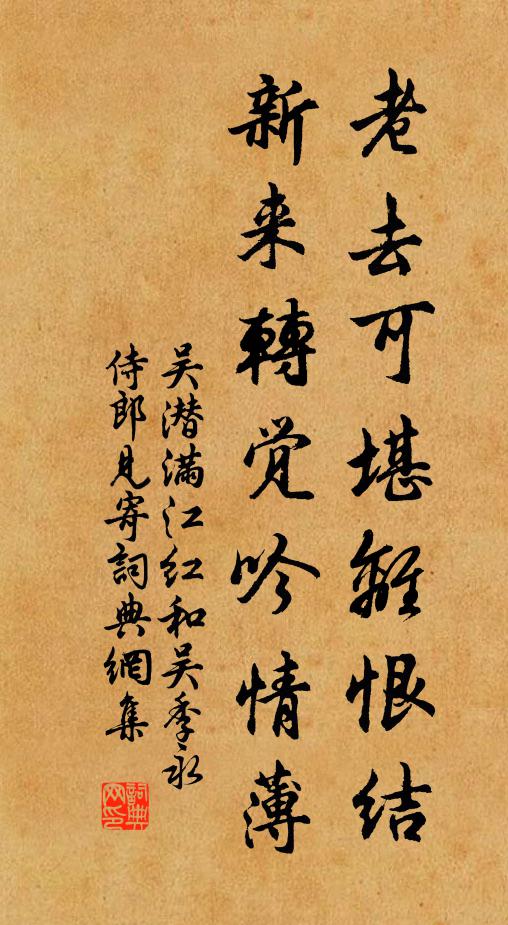 老去可堪離恨结
新来轉觉吟情薄
吴潜满江红和吴季永
侍郎見寄詞典網集
詞典网印